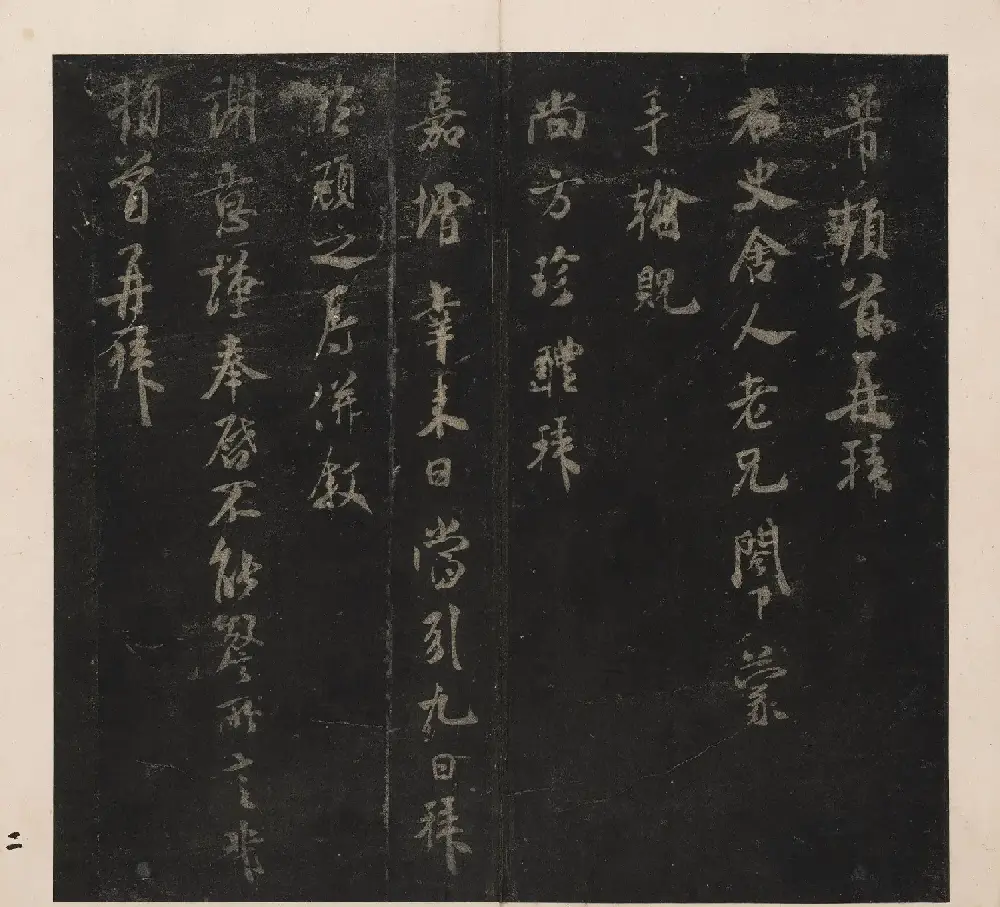 芾頓首再拜
右史舍人老兄閣下蒙
手翰貺
尚方珍醴拜
嘉增幸來日當引九日拜
顧之辱併敘
謝意謹奉啓不能罄所言芾
頓首再拜
二